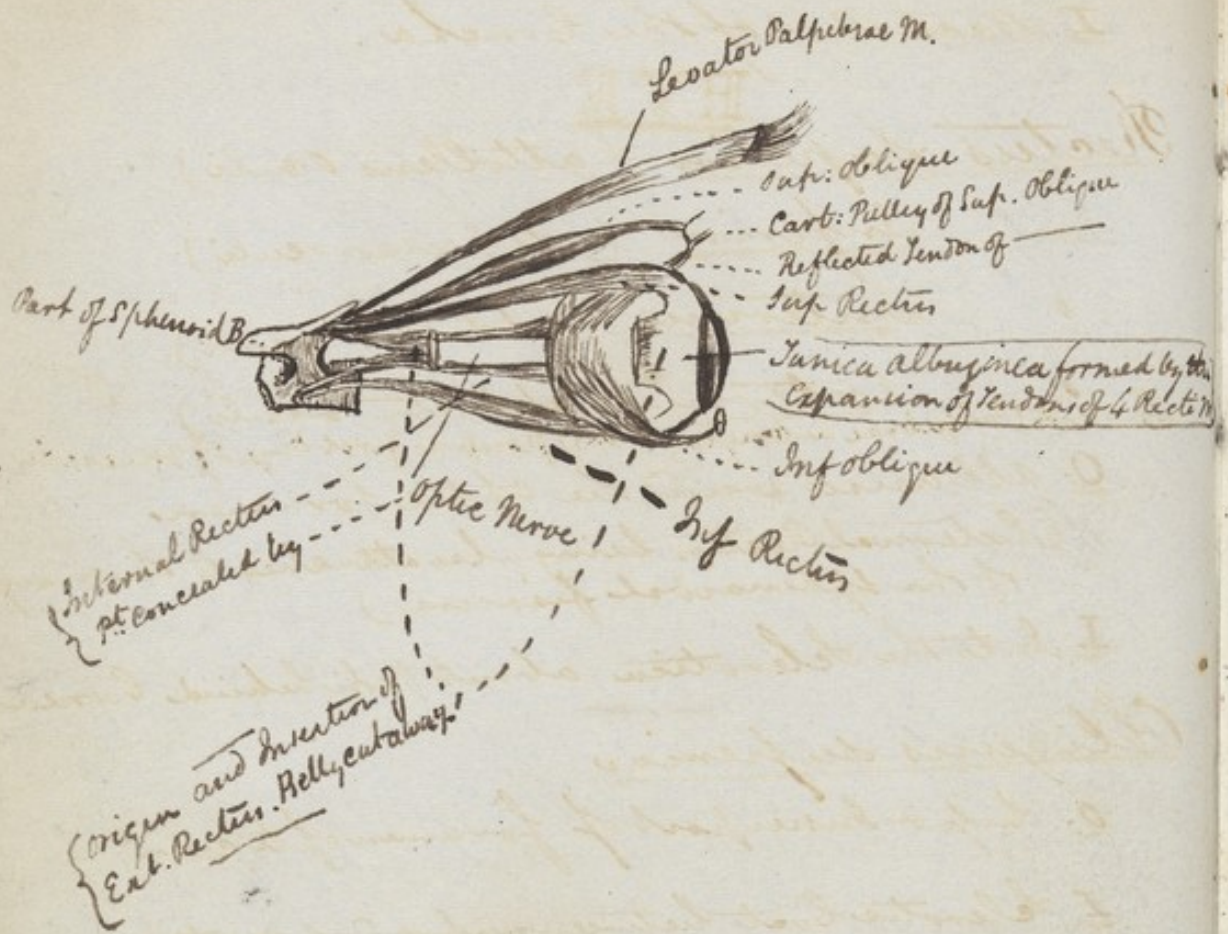 Levator Palpebrae M.
Sup: Oblique
Cart: Pulley of Sup. Oblique
Reflected Tendon of
Sup Rectus
Part of Sphenoid B
Tunica albuginea formed by the
Expansion of Tendons of 4 Recti M
Inf oblique
Inf Rectus
Optic Nerve
Internal Rectus
Pt. concealed by
Origin and Insertion of
Ext. Rectus. Belly cut away